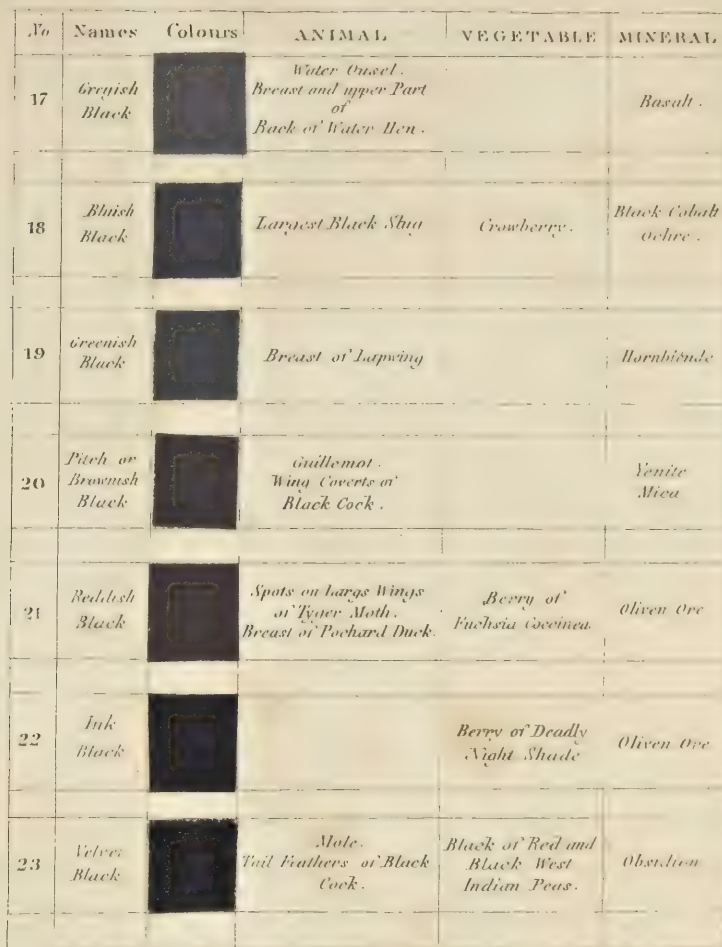 No Names Colours ANIMAL VEGETABLE MINERAL
17
Greyish
Black
Water Ousel.
Breast and upper Part
of
Back of Water Hen.
Basalt.
18
Bluish
Black
Largest Black Slug
Crowberry.
Black Cobalt
Ochre.
19
Greenish
Black
Breast of Lapwing
Hornblende
20
Pitch or
Brownish
Black
Guillemot.
Wing Coverts of
Black Cock.
Yenite
Mica
21
Reddish
Black
Spots on Largs Wings
of Tyger Moth.
Breast of Pochard Duck.
Berry of
Fuchsia Coccinea
Oliven Ore
22
Ink
Black
Berry of Deadly
Night Shade
Oliven Ore
23
Velvet
Black
Mole.
Tail Feathers of Black
Cock.
Black of Red and
Black West
Indian Peas.
Obsidian